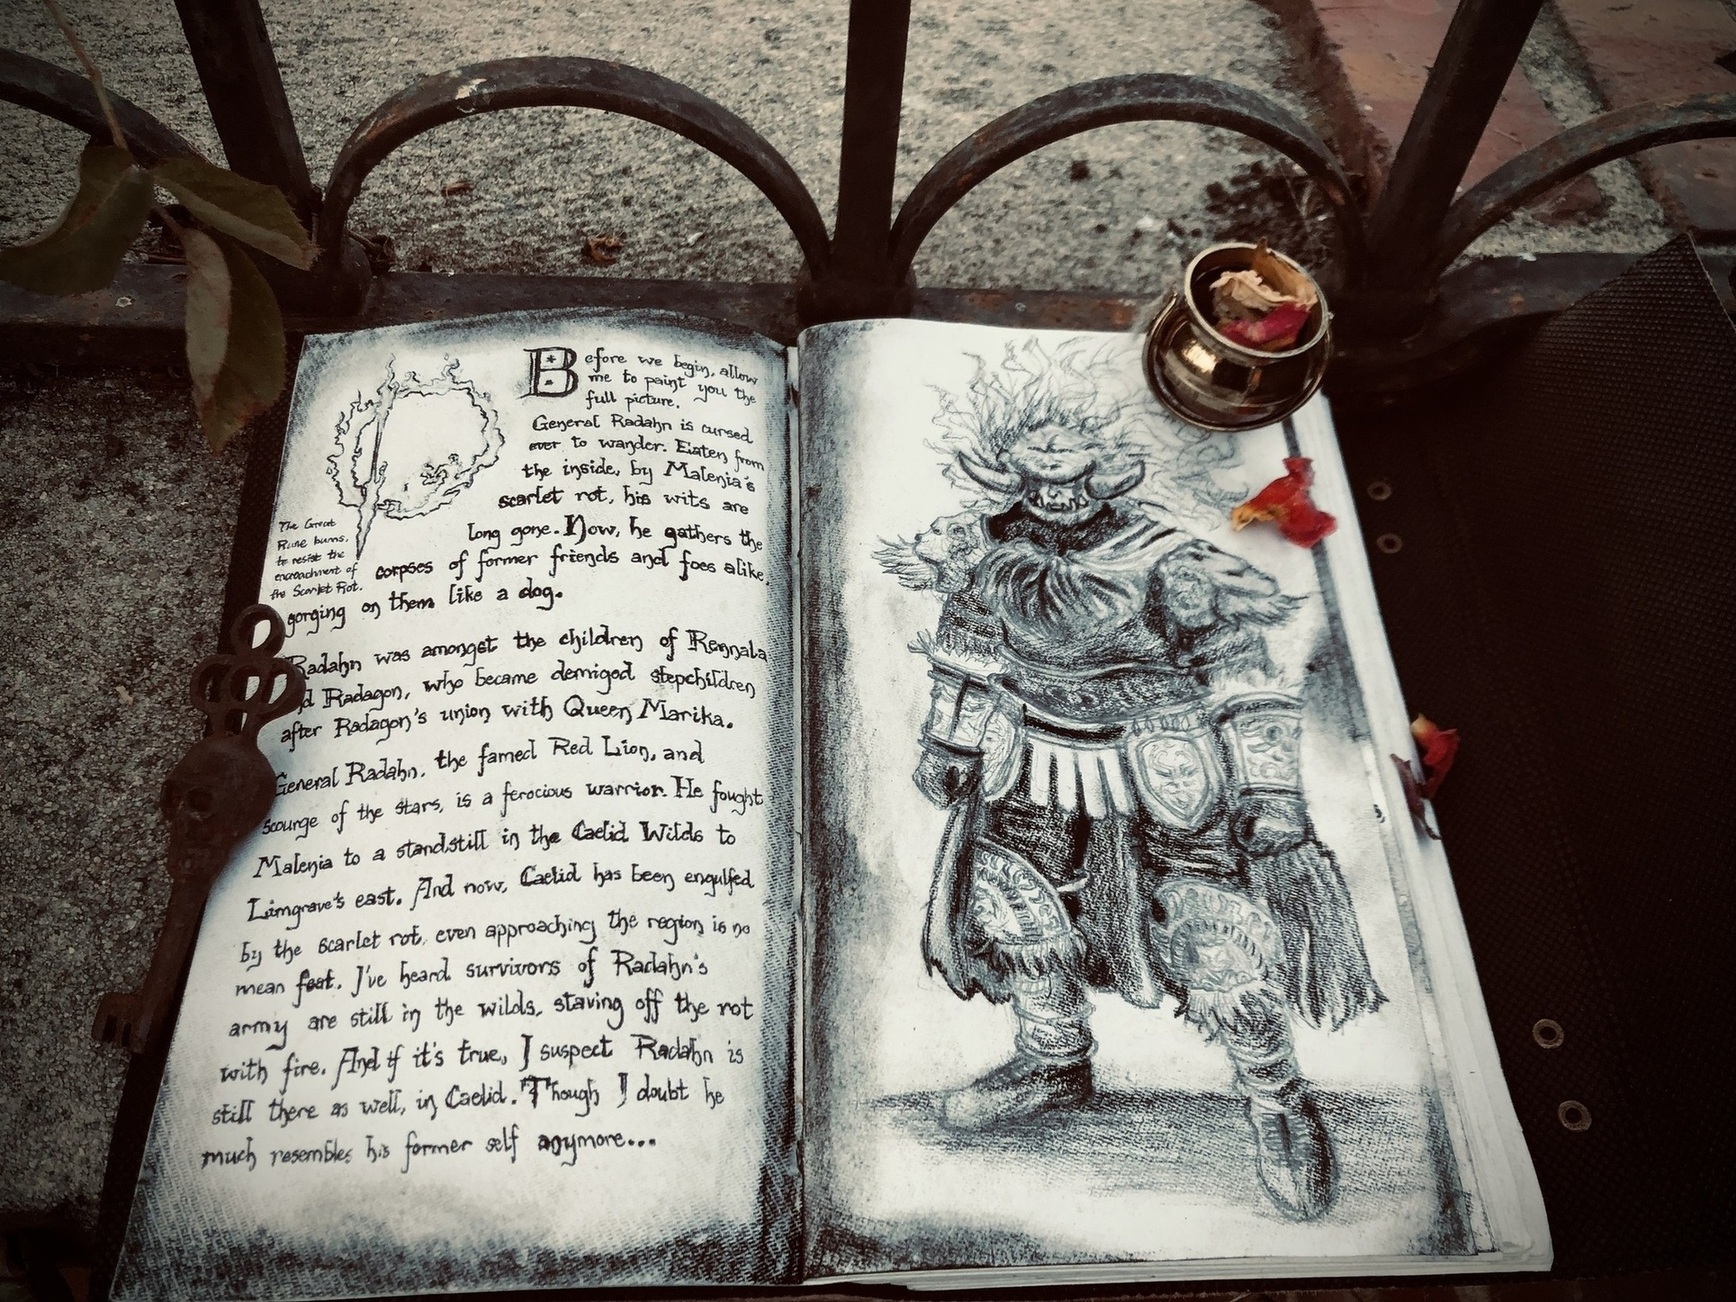 Before we begin, allow
me to paint you the
full picture.
General Radahn is cursed
ever to wander. Eaten from
the inside, by Malenia's
scarlet rot, his wits are
long gone. Now, he gathers the
corpses of former friends and foes alike,
gorging on them like a dog.
The Great
Rune burns,
to resist the
encroachment of
the Scarlet Rot.
Radahn was amongst the children of Rennala
nd Radagon, who became demigod stepchildren
after Radagon's union with Queen Marika.
General Radahn, the famed Red Lion, and
scourge of the stars, is a ferocious warrior. He fought
Malenia to a standstill in the Caelid Wilds to
Limgrave's east. And now, Caelid has been engulfed
by the scarlet rot, even approaching the region is no
mean feat. I've heard survivors of Radahn's
army are still in the wilds, staving off the rot
with fire. And if it's true, I suspect Radahn is
still there as well, in Caelid. Though I doubt he
much resembles his former self anymore...